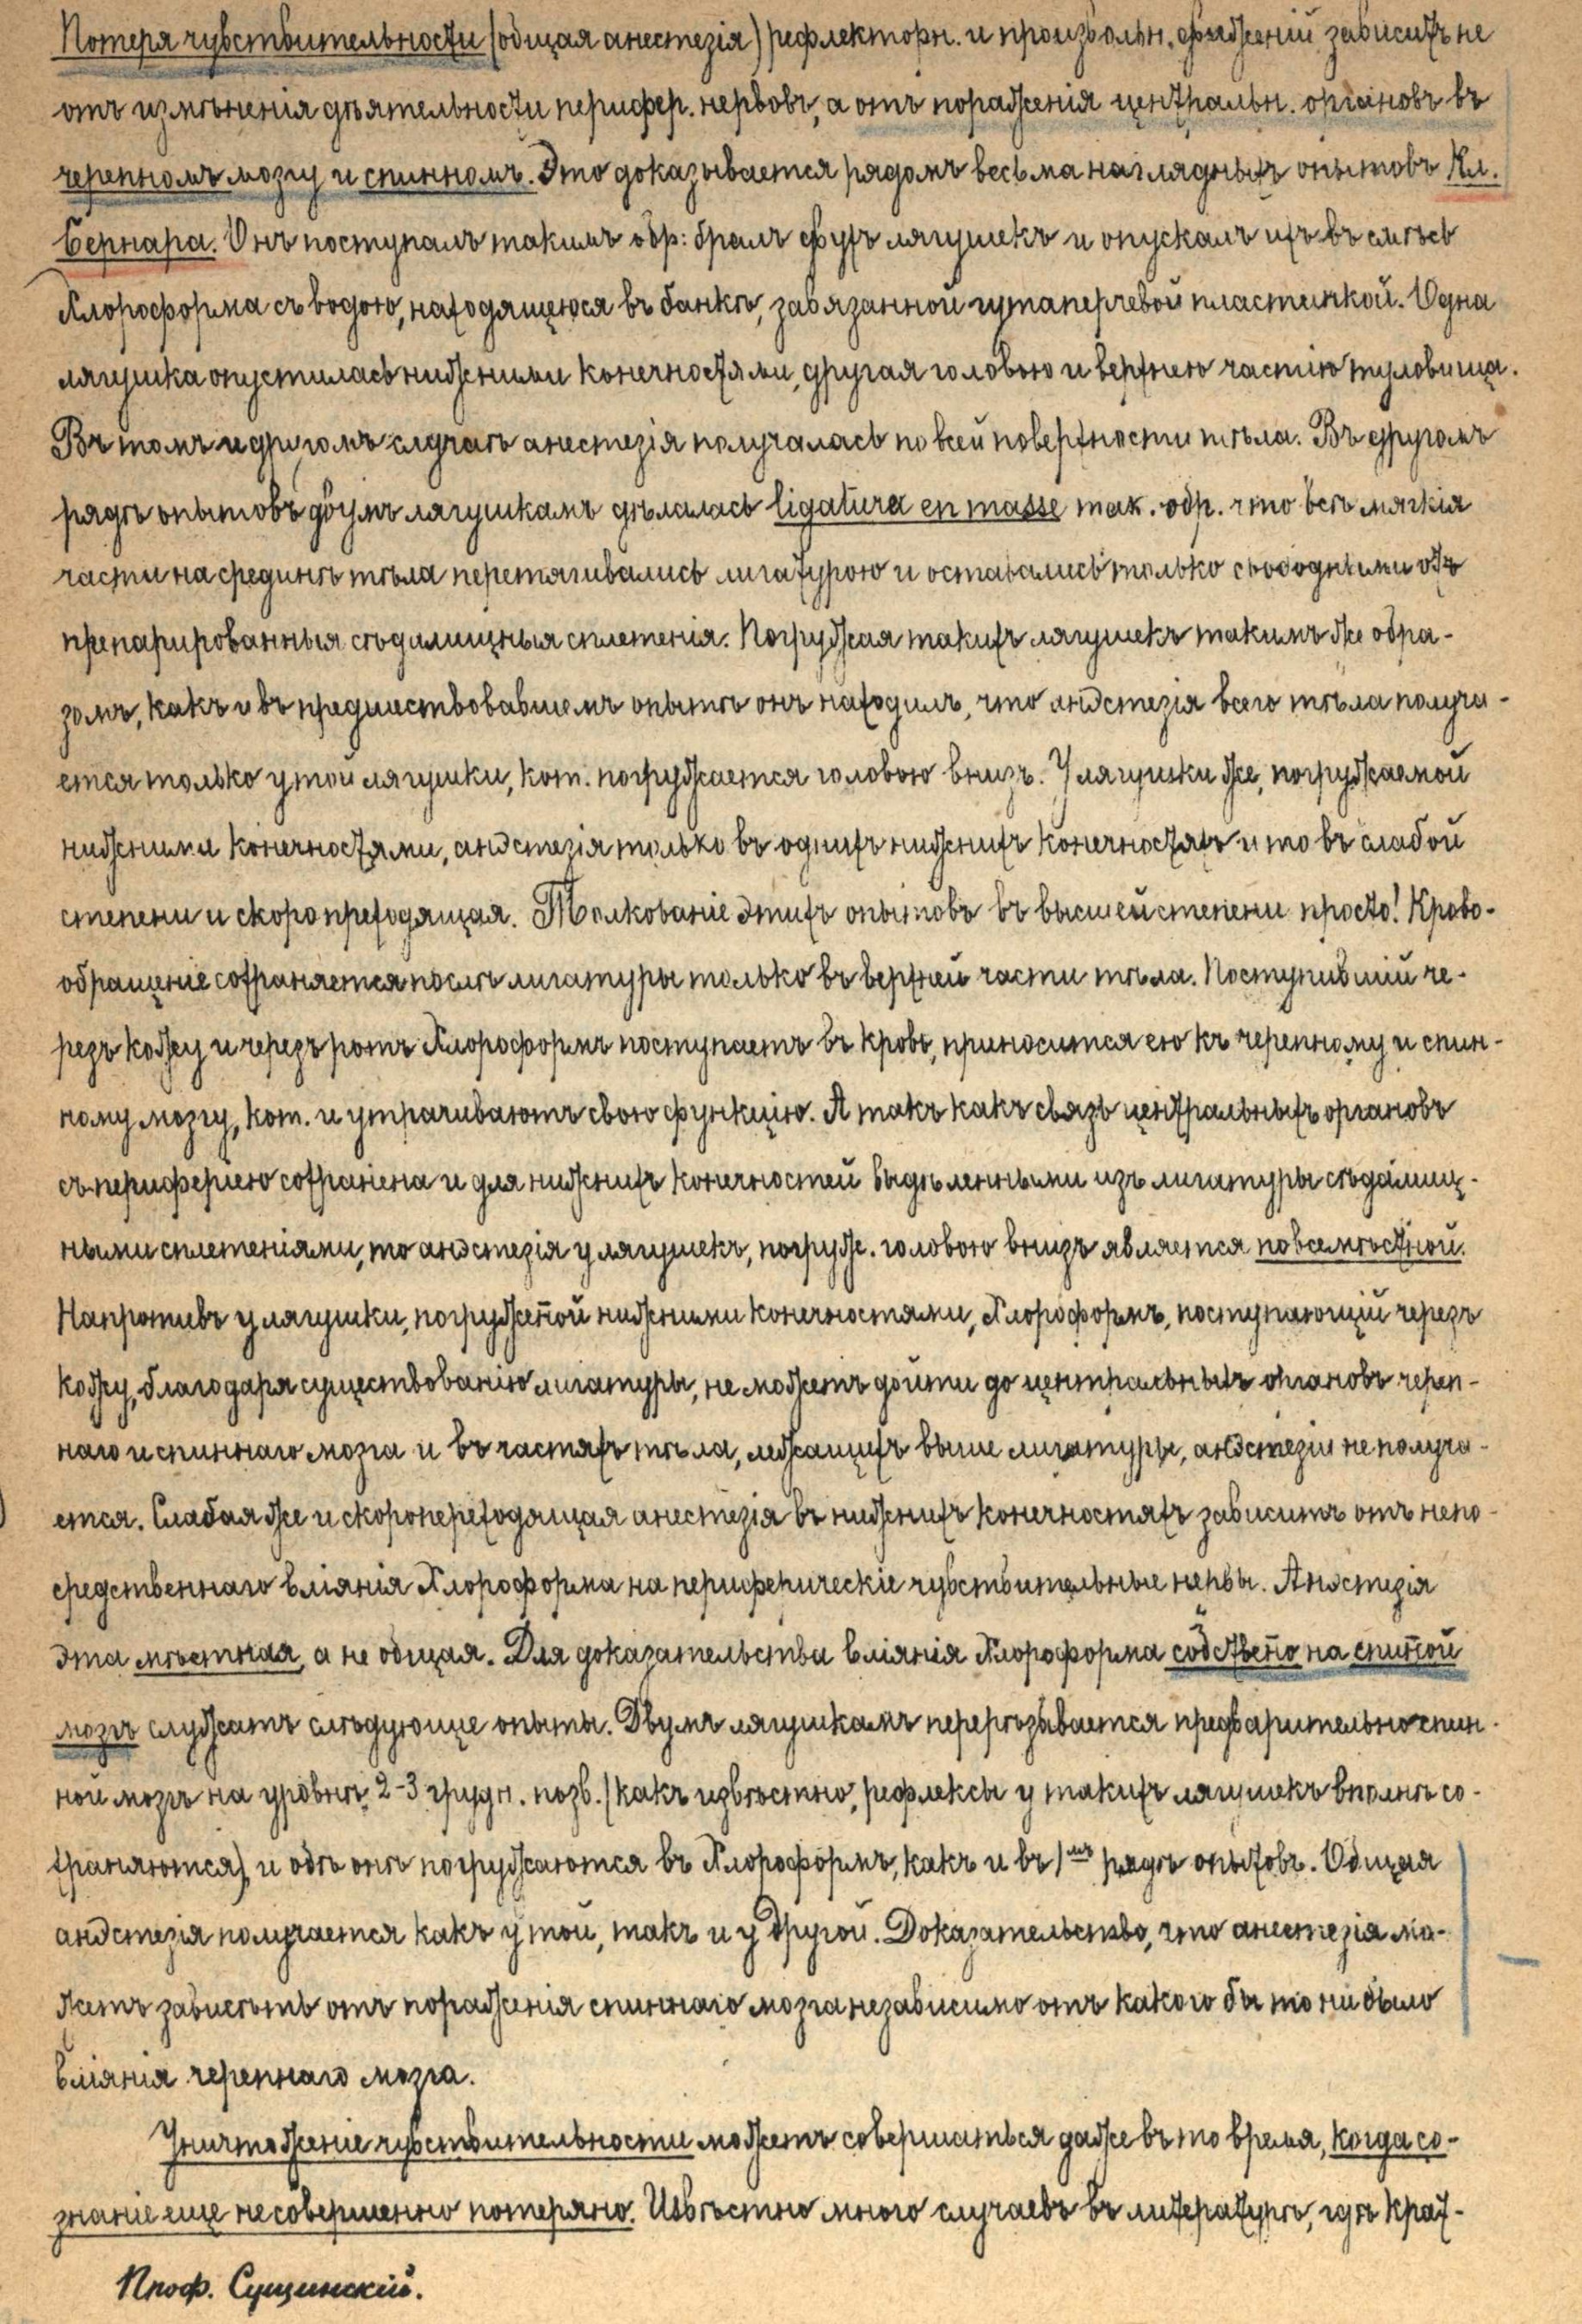 Потеря чувствительности (общая анестезія) рефлекторн. и произвольн. движеній зависитъ не
отъ измѣненія дѣятельности перифер. нервовъ, а отъ пораженія центральн. органовъ въ
черепномъ мозгу и спинномъ. Это доказывается рядомъ весьма наглядныхъ опытовъ Кл.
Бернара. Онъ поступалъ такимъ обр: бралъ двухъ лягушекъ и опускалъ ихъ въ смѣсь
Хлороформа съ водою, находящеюся въ банкѣ, завязанной гутаперчевой пластинкой. Одна
лягушка опустилась нижними конечностями, другая головою и верхнею частію туловища.
Въ томъ и другомъ случаѣ анестезія получалась по всей поверхности тѣла. Въ другомъ
рядѣ опытовъ двумъ лягушкамъ дѣлалась ligatura en masse так. обр. что всѣ мягкія
части на срединѣ тѣла перетягивались лигатурою и оставались только свободными отъ
препарированныя сѣдалищныя сплетенія. Погружая такихъ лягушекъ такимъ же обра-
зомъ, какъ и въ предшествовавшемъ опытѣ онъ находилъ, что анэстезія всего тѣла получа-
ется только у той лягушки, кот. погружается головою внизъ. У лягушки же, погружаемой
нижними конечностями, анэстезія только въ однихъ нижнихъ конечностяхъ и то въ слабой
степени и скоропреходящая. Толкованіе этихъ опытовъ въ высшей степени просто! Крово-
обращеніе сохраняется послѣ лигатуры только въ верхней части тѣла. Поступившій че-
резъ кожу и черезъ ротъ Хлороформъ поступаетъ въ кровь, приносится ею къ черепному и спин-
ному мозгу, кот. и утрачиваютъ свою функцію. А такъ какъ связь центральныхъ органовъ
съ периферіею сохранена и для нижнихъ конечностей выдѣленными изъ лигатуры сѣдалищ-
ными сплетеніями, то анэстезія у лягушекъ, погруж. головою внизъ является повсемѣстной.
Напротивъ у лягушки, погруженой нижними конечностями, Хлороформъ, поступающій черезъ
кожу, благодаря существованію лигатуры, не можетъ дойти до центральныхъ органовъ череп-
наго и спиннаго мозга и въ частяхъ тѣла, лежащихъ выше лигатуры, анэстезіи не получа-
ется. Слабая же и скоропереходящая анестезія въ нижнихъ конечностяхъ зависитъ отъ непо-
средственнаго вліянія Хлороформа на периферическіе чувствительные нервы. Анэстезія
эта мѣстная, а не общая. Для доказательства вліянія Хлороформа собствено на спиной
мозгъ служатъ слѣдующіе опыты. Двумъ лягушкамъ перерѣзывается предварительно спин-
ной мозгъ на уровнѣ 2-3 грудн. позв. (какъ извѣстно, рефлексы у такихъ лягушекъ вполнѣ со-
храняются), и обѣ онѣ погружаются въ Хлороформъ, какъ и въ 1мъ рядѣ опытовъ. Общая
анэстезія получается какъ у той, такъ и у другой. Доказательство, что анестезія мо-
жетъ зависѣть отъ пораженія спиннаго мозга независимо отъ какого бы то ни было
вліянія черепнаго мозга.
Уничтоженіе чувствительности можетъ совершаться даже въ то время, когда со-
знаніе еще не совершенно потеряно. Извѣстно много случаевъ въ литературѣ, гдѣ крат-
Проф. Сущинскій.